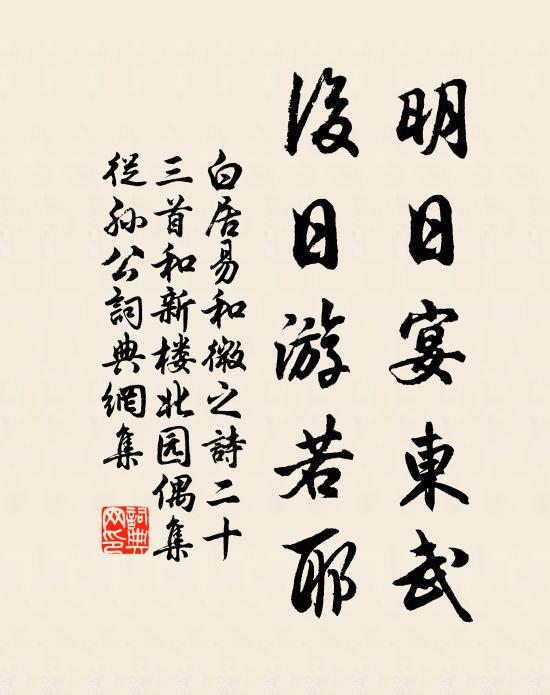 明日宴東武
後日游若耶
白居易和微之詩二十
三首和新楼北园偶集
從孙公詞典網集
詞典网印